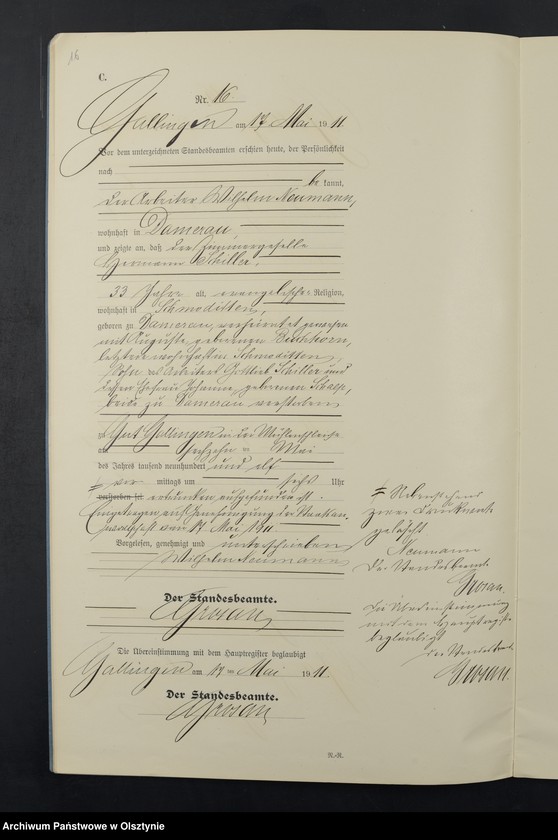 16
C.
Nr. 16
Gallingen am 17 Mai 1911.
Vor dem unterzeichneten Standesbeamten erschien heute, der Persönlichkeit
nach
be kannt,
der Arbeiter Wilhelm Neumann,
wohnhaft in Damerau,
und zeigte an, daß der Zimmergeselle
Hermann Schiller,
33 Jahre alt, evangelischer Religion,
wohnhaft in Schmoditten,
geboren zu Damerau, verheiratet gewesen
mit Auguste, geborenen
letztere wohnhaft in Schmoditten,
Sohn des Arbeiters Gottlieb Schiller und
dessen Ehefrau Johanna, geborenen
beide zu Damerau verstorben
zu Gut Gallingen in der
am sechzehn ten Mai
des Jahres tausend neunhundert und elf
vor mittags um sechs Uhr
verstorben sei ertrunken aufgefunden ist.
Eingetragen auf Genehmigung der Staatsan-
waltschaft vom 17. Mai 1911.
Vorgelesen, genehmigt und unterschrieben
Wilhelm Neumann
Der Standesbeamte.
Grosan
Die Übereinstimmung mit dem Hauptregister beglaubigt
Gallingen am 17ten Mai 1911.
Der Standesbeamte.
Grosan
Nebenstehend
zwei Druckworte
gelöscht
Neumann
Der Standesbeamte
Grosan
Die Übereinstimmung
mit dem Hauptregister
beglaubigt
Der Standesbeamte
Grosan.
N.-R.
Archiwum Państwowe w Olsztynie